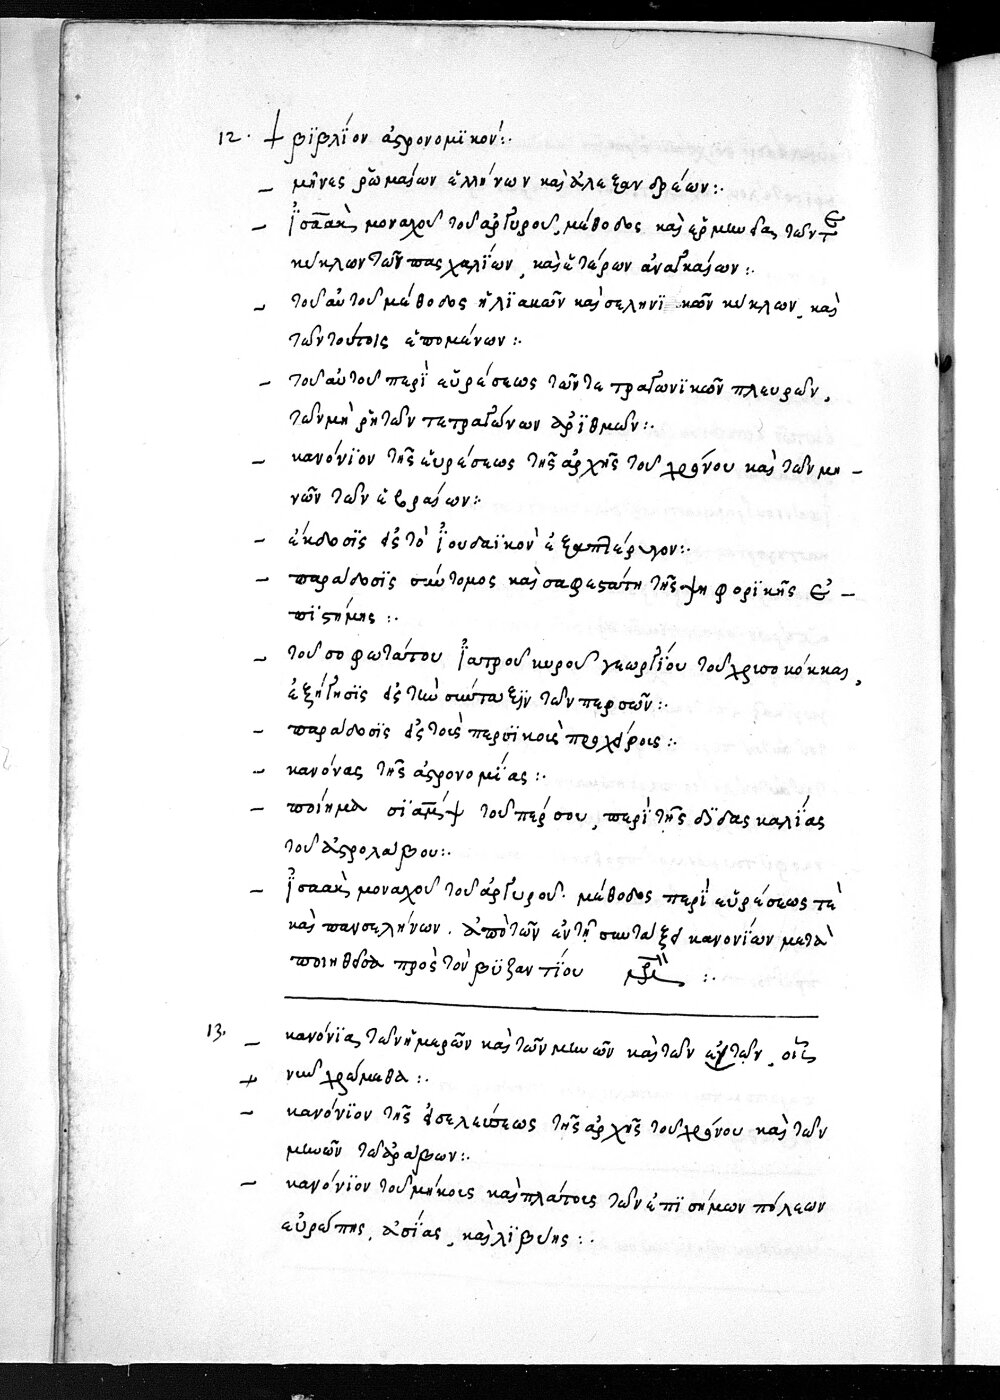 12. + βϊβλΐον ἀστρονομϊκόν:·
– μῆνες ῥωμαίων ἑλλήνων καὶ ἀλεξανδρέων:·
– ἰ̈σαὰκ μοναχοῦ τοῦ ἀργυροῦ, μέθοδος καὶ ἑρμ τῶν
κύκλων τῶν πασχαλίων, καὶ ἑτέρων ἀναγκαίων:·
– τοῦ αὐτοῦ μέθοδος ἡλϊακῶν καὶ σεληνϊκῶν κύκλων, καὶ
τῶν τούτοις ἑπομένων:·
– τοῦ αὐτοῦ περὶ̈ εὑρέσεως τῶν τετραγωνϊκῶν πλευρῶν,
τῶν μὴ ῥητῶν τετραγώνων ἀρϊθμῶν:·
– κανόνϊον τῆς εὑρέσεως τῆς ἀρχῆς τοῦ χρόνου καὶ τῶν μη –
νῶν τῶν ἑβραίων:·
– ἔκδοσϊς εἰς τὸ ἰ̈ουδαϊκὸν ἑξαπτέρυγον:·
– παράδοσϊς σύντομος καὶ σαφεστάτη τῆς ψηφορϊκῆς ἐ –
πϊστήμης:·
– τοῦ σοφωτάτου ἰ̈ατροῦ κυροῦ γεωργΐου τοῦ χρισοκόκκας,
ἐξήγησϊς εἰς τὴν σύνταξϊν τῶν περσῶν:·
– παράδοσϊς εἰς τοὺς περσϊκοὺς προχείρους:·
– κανόνας τῆς ἀστρονομΐας:·
– ποίημα σϊὰμψ τοῦ πέρσου, περῒ τῆς δϊδασκαλΐας
τοῦ ἀστρολάβου:·
– ἰ̈σαὰκ μοναχοῦ τοῦ ἀργυροῦ. μέθοδος περὶ̈ εὑρέσεως τὲ
καὶ πανσελήνων. ἀπὸ τῶν ἐν τῇ συντάξει κανονίων μετα
ποιηθεῖσα πρὸς τὸν βϋζαντΐου :·
13. – κανόνϊας τῶν ἡμερῶν καὶ τῶν μηνῶν καὶ τῶν ἐτῶν, οἷς
+ νῦν χρώμεθα:·
– κανόνϊον τῆς εἰσελεύσεως τῆς ἀρχῆς τοῦ χρόνου καὶ τῶν
μηνῶν τῶν ἀράβων:·
– κανόνϊον τοῦ μήκους καὶ πλάτους τῶν ἐπϊσήμων πόλεων
εὐρώπης, ἀσΐας, καὶ λϊβύης:·